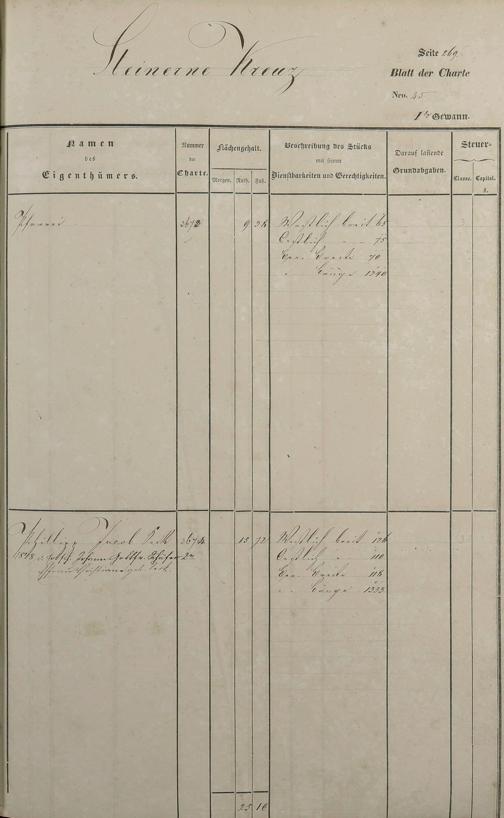 Steinerne Kreuz
Seite 269
Blatt der Charte
Nro. 45
1te Gewann.
Namen
des
Eigenthümers.
Nummer
der
Charte.
Flächengehalt.
Morgen. Ruth. Fuß.
Beschreibung des Stücks
mit seinen
Dienstbarkeiten und Gerechtigkeiten.
Darauf lastende
Grundabgaben.
Steuer-
Classe. Capital.
Pfarrei 3673 9 38 Westlich breit 65
Oestlich 75
Ger. Breite 70
Länge 1340
Philipp Jacob 3674 15 72 Westlich breit 126
Oestlich 110
Ger. Breite 118
Länge 1333
25 10